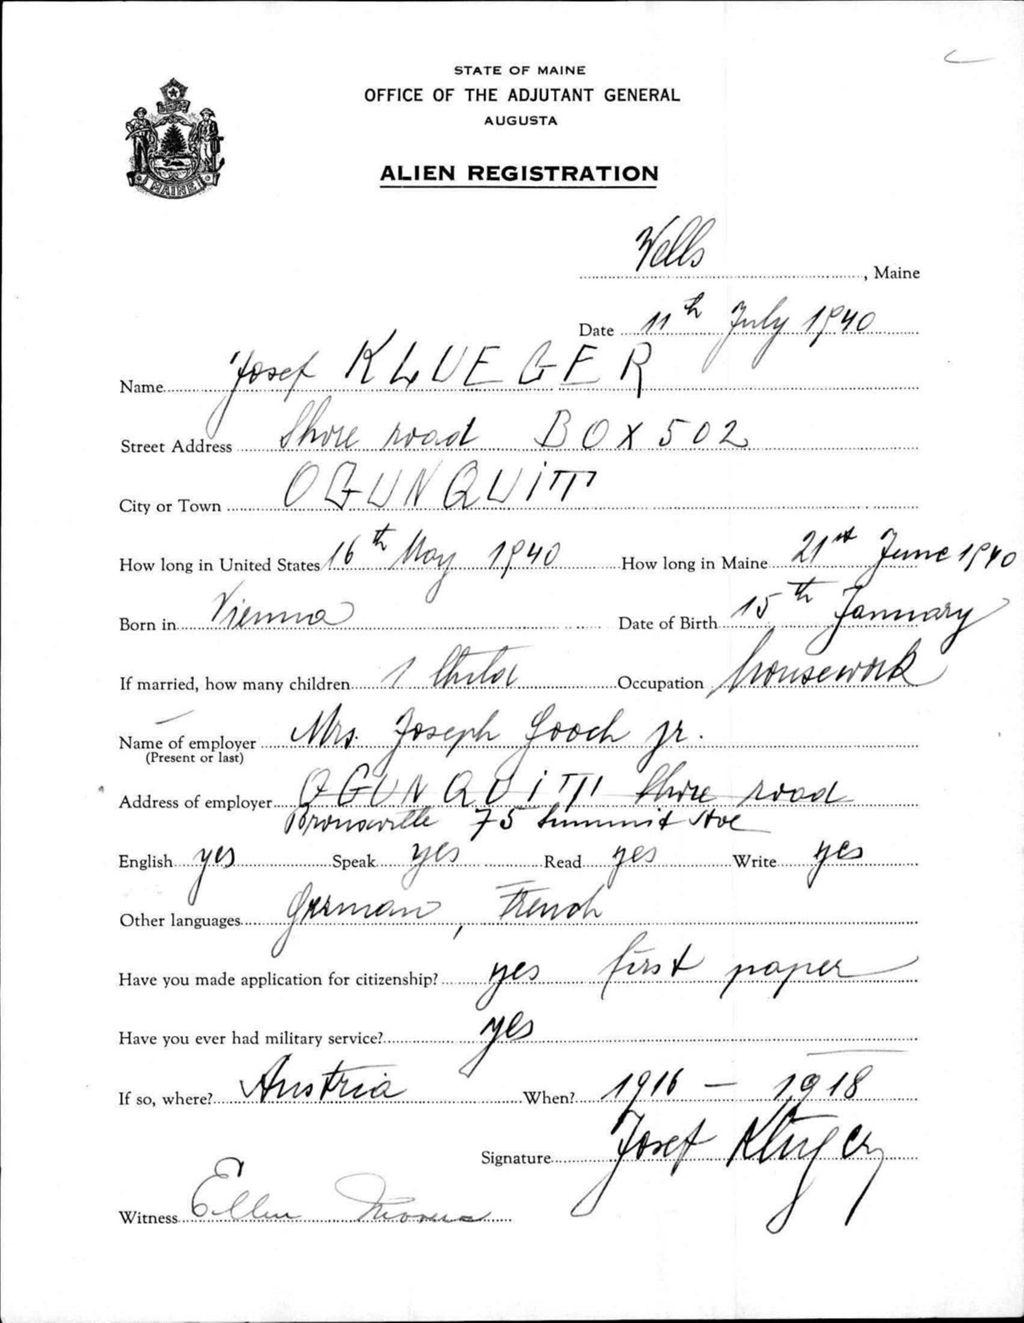 STATE OF MAINE
OFFICE OF THE ADJUTANT GENERAL
AUGUSTA
ALIEN REGISTRATION
MAINE
Wells, Maine
Date 11th July 1940
Name Josef KLUEGER
Street Address Shore road BOX 502
City or Town OGUNQUIT
How long in United States 16th May 1940 How long in Maine 21st June 1940
Born in Vienna Date of Birth 15th January
If married, how many children 1 Child Occupation housework
Name of employer Mrs. Joseph Gooch jr.
(Present or last)
Address of employer OGUNQUIT Shore road
Bronxville 75 Summit Ave
English yes Speak yes Read yes Write yes
Other languages German, French
Have you made application for citizenship? yes first paper
Have you ever had military service? yes
If so, where? Austria When? 1916 - 1918
Signature Josef Klüger
Witness Ellen